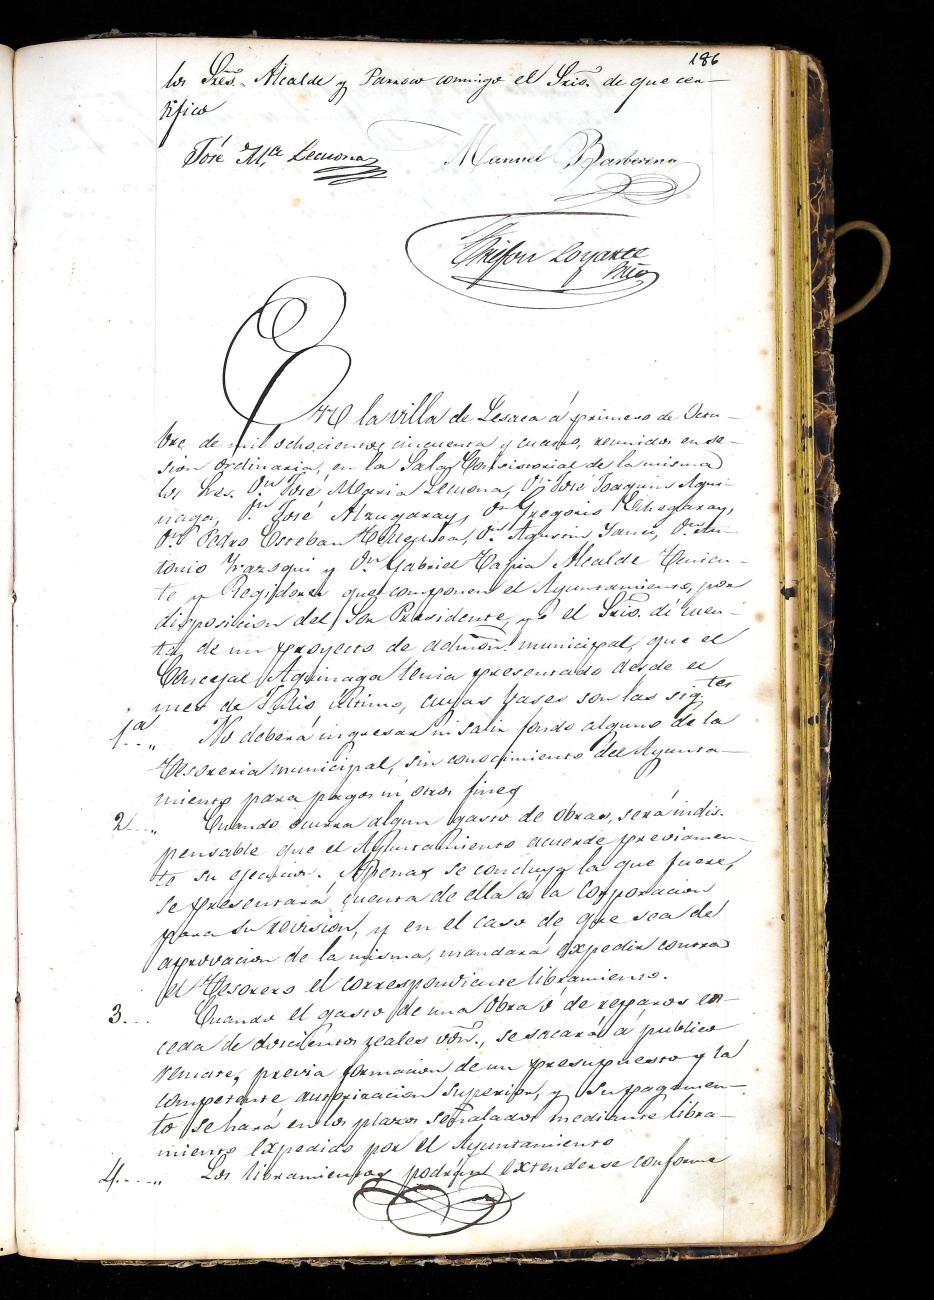 186
los Sres. Alcalde y Parroco conmigo el Srio. de que cer-
tifico
José Mª Lecuona
Manuel Barberena
Loyarte
Srio
En la villa de Lesaca á primero de Octu-
bre de mil ochocientos cincuenta y cuatro, reunidos en se-
sion ordinaria, en la Sala Consistorial de la misma
los Sres. Dn José Maria Lecuona, Dn José Joaquin Agui-
naga, Dn José Alzugaray, Dn Gregorio Echegaray,
Dn Pedro Esteban Dn Agustin Dn An-
tonio Irazoqui y Dn Gabriel Tapia Alcalde Tenien-
te y Regidores que componen el Ayuntamiento, por
disposicion del Sor Presidente, yo el Srio. di cuen-
ta de un proyecto de admon. municipal, que el
Concejal Aguinaga tenia presentado desde el
mes de Julio último, cuyas vases son las sigtes
1ª.. „ No deberá ingresar ni salir fondo alguno de la
Tesoreria municipal, sin conocimiento del Ayunta-
miento para pagos ni otros fines
2... „ Cuando ocurra algun gasto de obras, será indis-
pensable que el Ayuntamiento acuerde previamen-
te su ejecucion. Apenas se concluya la que fuere,
se presentará cuenta de ella á la Corporacion
para su revision, y en el caso de que sea de
aprovacion de la misma, mandará expedir contra
el Tesorero el correspondiente libramiento.
3.... Cuando el gasto de una obra ó de reparos ex-
ceda de doscientos reales von., se sacará á publico
remate, previa formacion de un presupuesto y la
competente autorizacion superior, y su pagamen-
to se hará en los plazos señalados mediante libra-
miento expedido por el Ayuntamiento
4..... „ Los libramientos podrán extenderse conforme